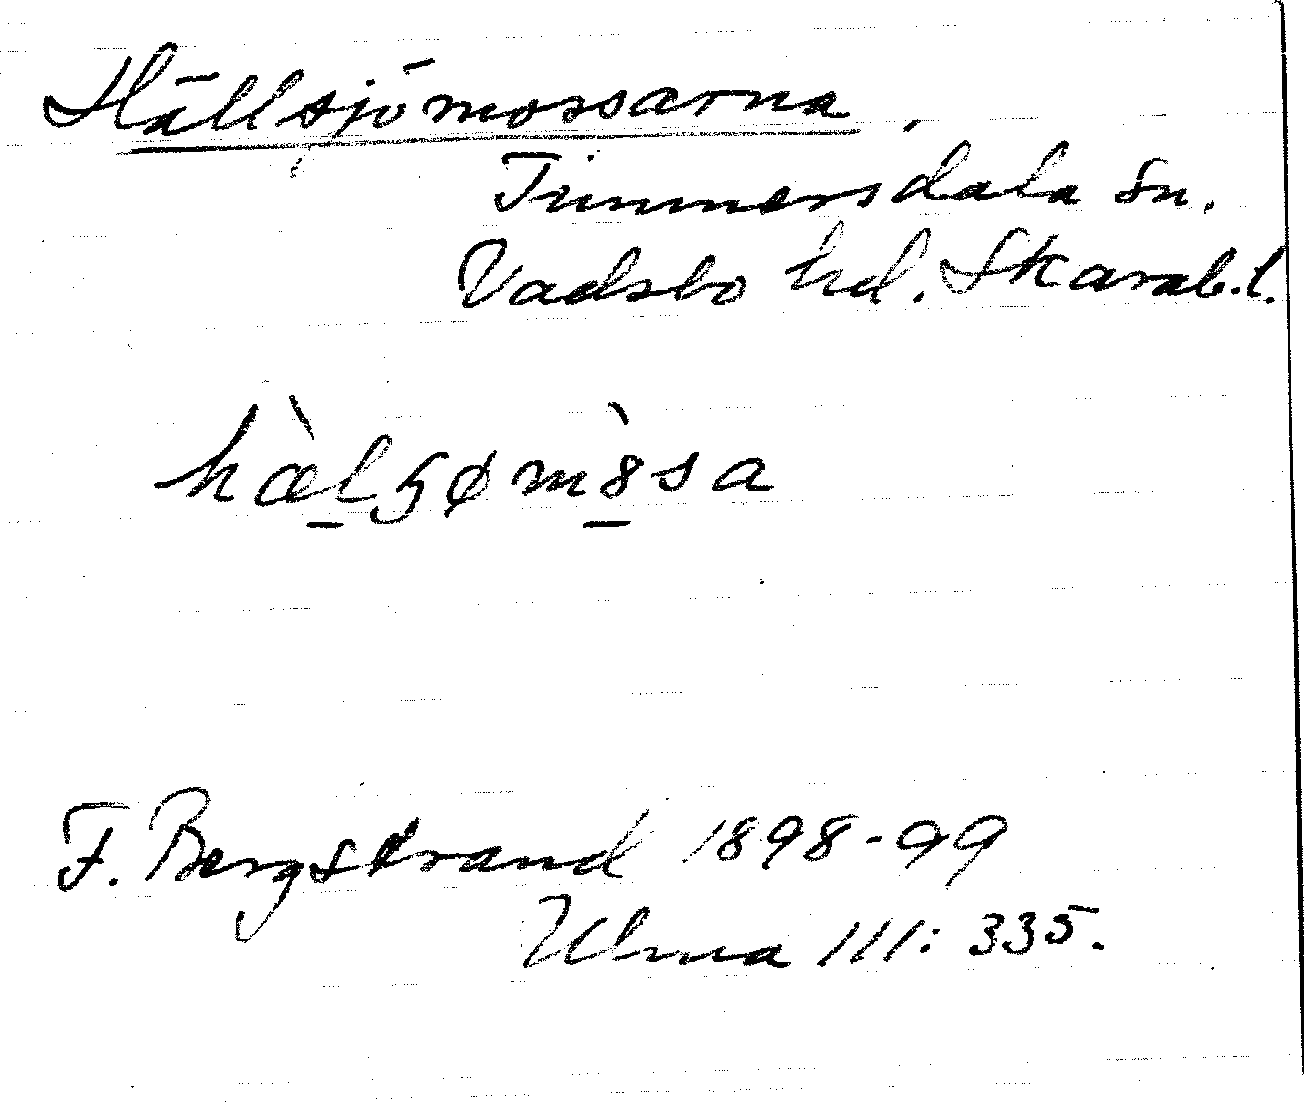 Hällsjömossarna,
Timmersdala sn.
Vadsbo hd. Skarab.l.
hæ̀l̠ʂøm8̠̀sa
F. Bergstrand 1898-99
Ulma 111: 335.